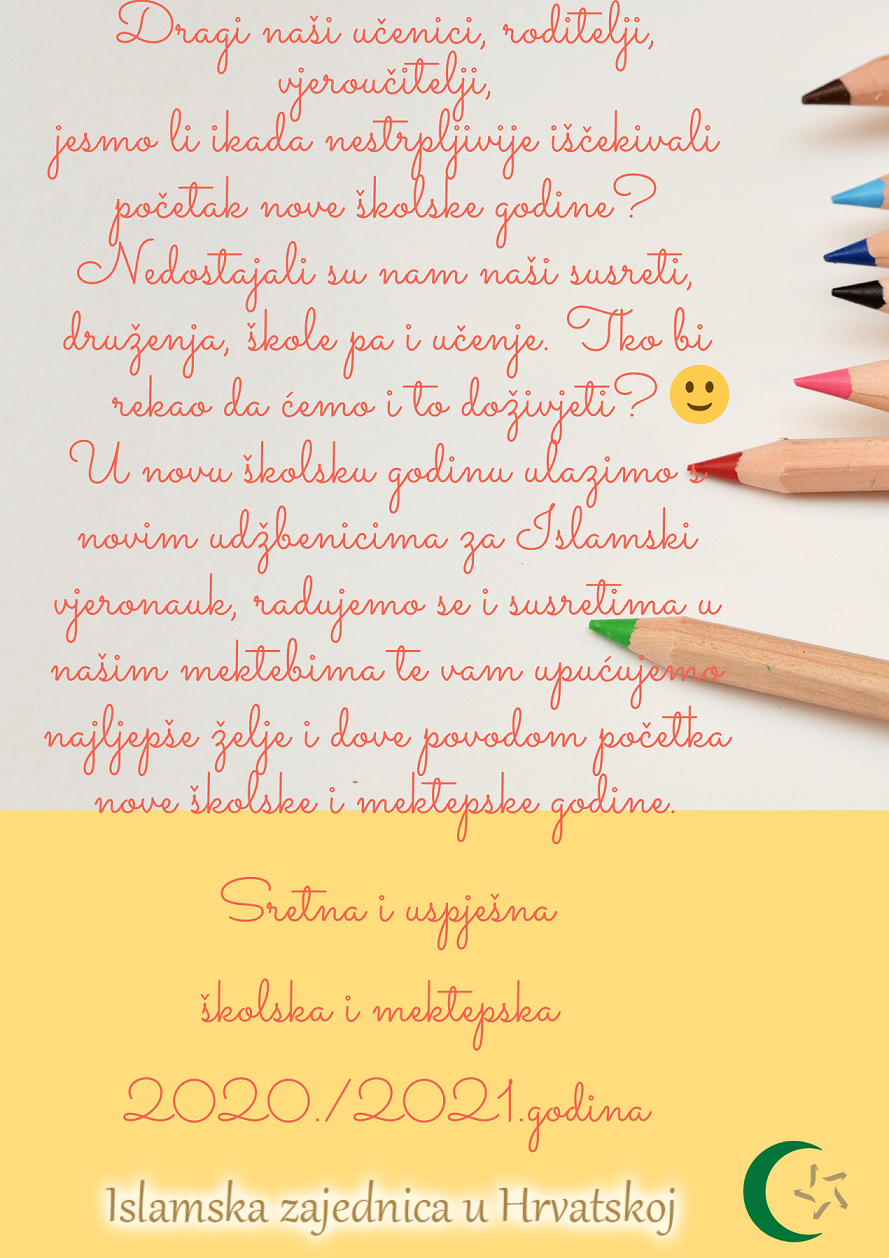 Dragi naši učenici, roditelji,
vjeroučitelji,
jesmo li ikada nestrpljivije iščekivali
početak nove školske godine?
Nedostajali su nam naši susreti,
druženja, škole pa i učenje. Tko bi
rekao da ćemo i to doživjeti? 🙂
U novu školsku godinu ulazimo s
novim udžbenicima za Islamski
vjeronauk, radujemo se i susretima u
našim mektebima te vam upućujemo
najljepše želje i dove povodom početka
nove školske i mektepske godine.
Sretna i uspješna
školska i mektepska
2020./2021.godina
Islamska zajednica u Hrvatskoj